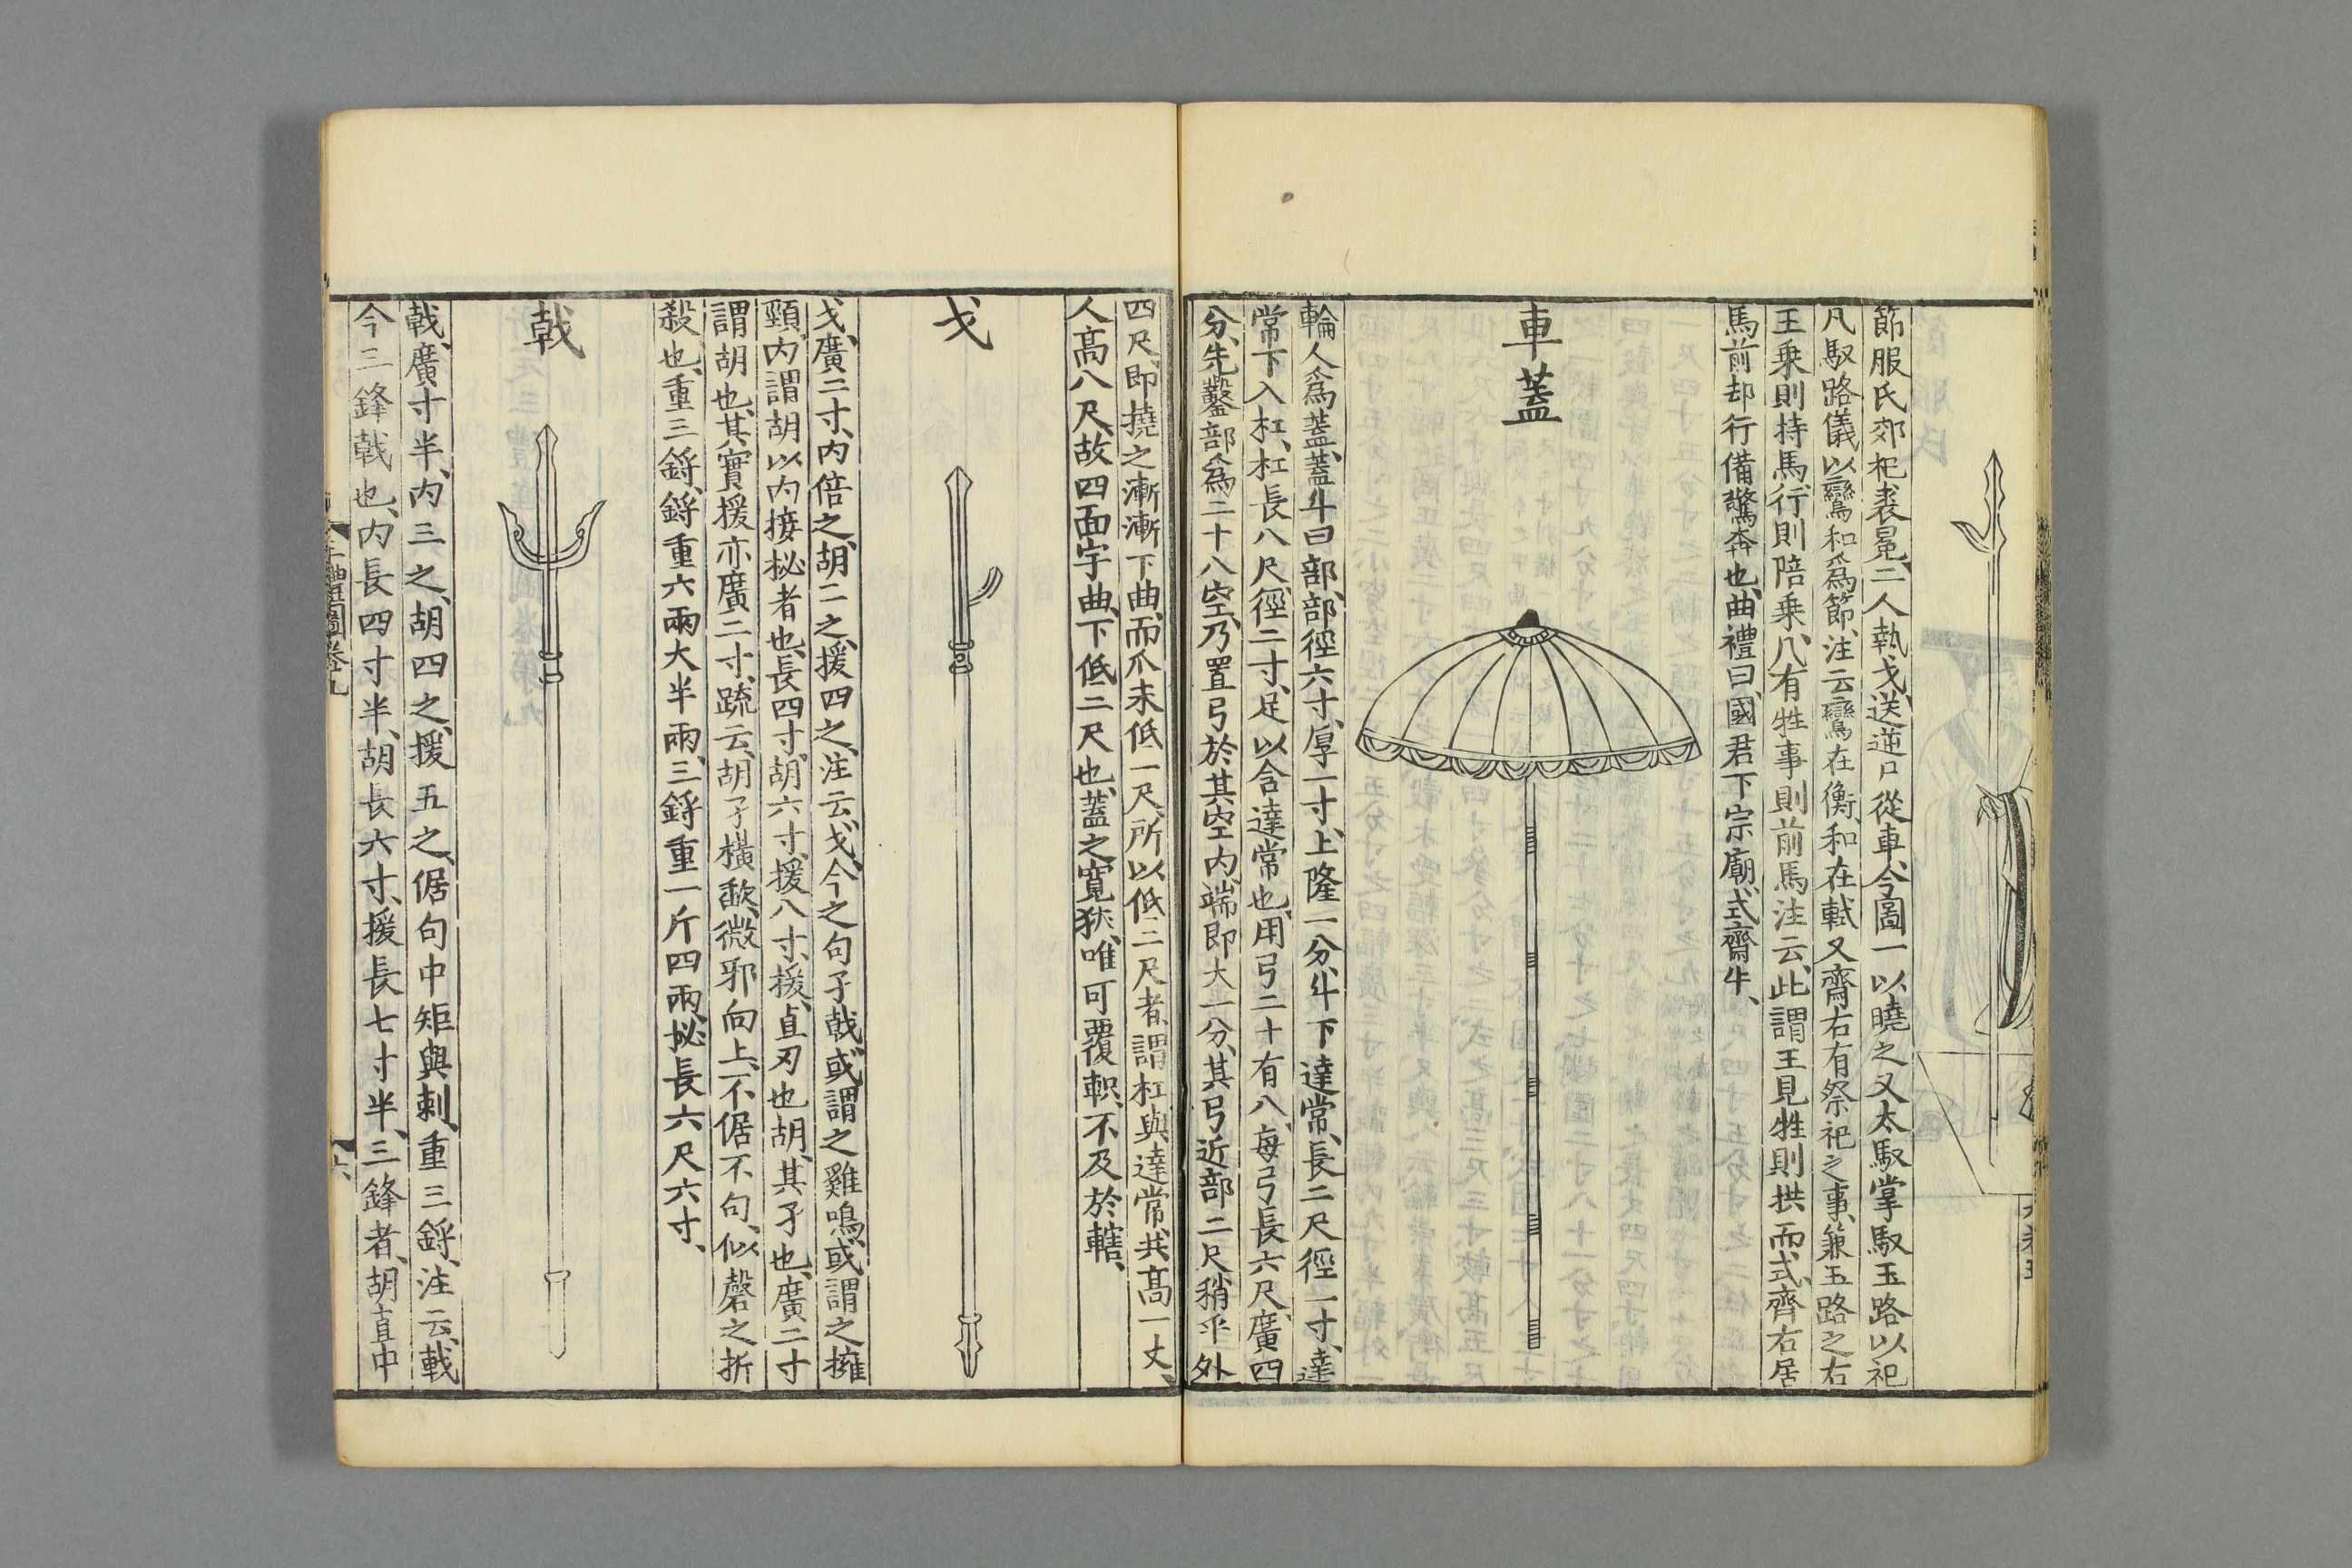 節服氏郊祀裘冕二人執戈送逆尸從車今圖一以曉之又太馭掌馭玉路以祀
凡馭路儀以鸞和爲節注云鸞在衡和在軾又齊右有祭祀之事兼玉路之右
王乗則持馬行則陪乗凡有牲事則前馬注云此謂王見牲則拱而式齊右居
馬前却行備驚奔也曲禮曰國君下宗廟式齊牛
車蓋
輪人爲蓋蓋斗曰部部徑六寸厚一寸上隆一分斗下達常長二尺徑一寸達
常下入杠杠長八尺徑二寸足以含達常也用弓二十有八每弓長六尺廣四
分先鑿部爲二十八空乃置弓於其空内端即大一分其弓近部二尺稍平外
四尺即撓之漸漸下曲而爪末低一尺所以低二尺者謂杠與達常共高一丈
人高八尺故四面宇曲下低二尺也蓋之寬狹唯可覆軹不及於轄
戈
戈廣二寸内倍之胡三之援四之注云戈今之句孑戟或謂之雞鳴或謂之擁
頸内謂胡以内接柲者也長四寸胡六寸援八寸援直刃也胡其孑也廣二寸
謂胡也其實援亦廣二寸疏云胡孑橫㽃微邪向上不倨不句似磬之折
殺也重三鋝鋝重六兩大半兩三鋝重一斤四兩柲長六尺六寸
戟
戟廣寸半内三之胡四之援五之倨句中矩與刺重三鋝注云戟
今三鋒戟也内長四寸半胡長六寸援長七寸半三鋒者胡直中
三禮圖卷九
六